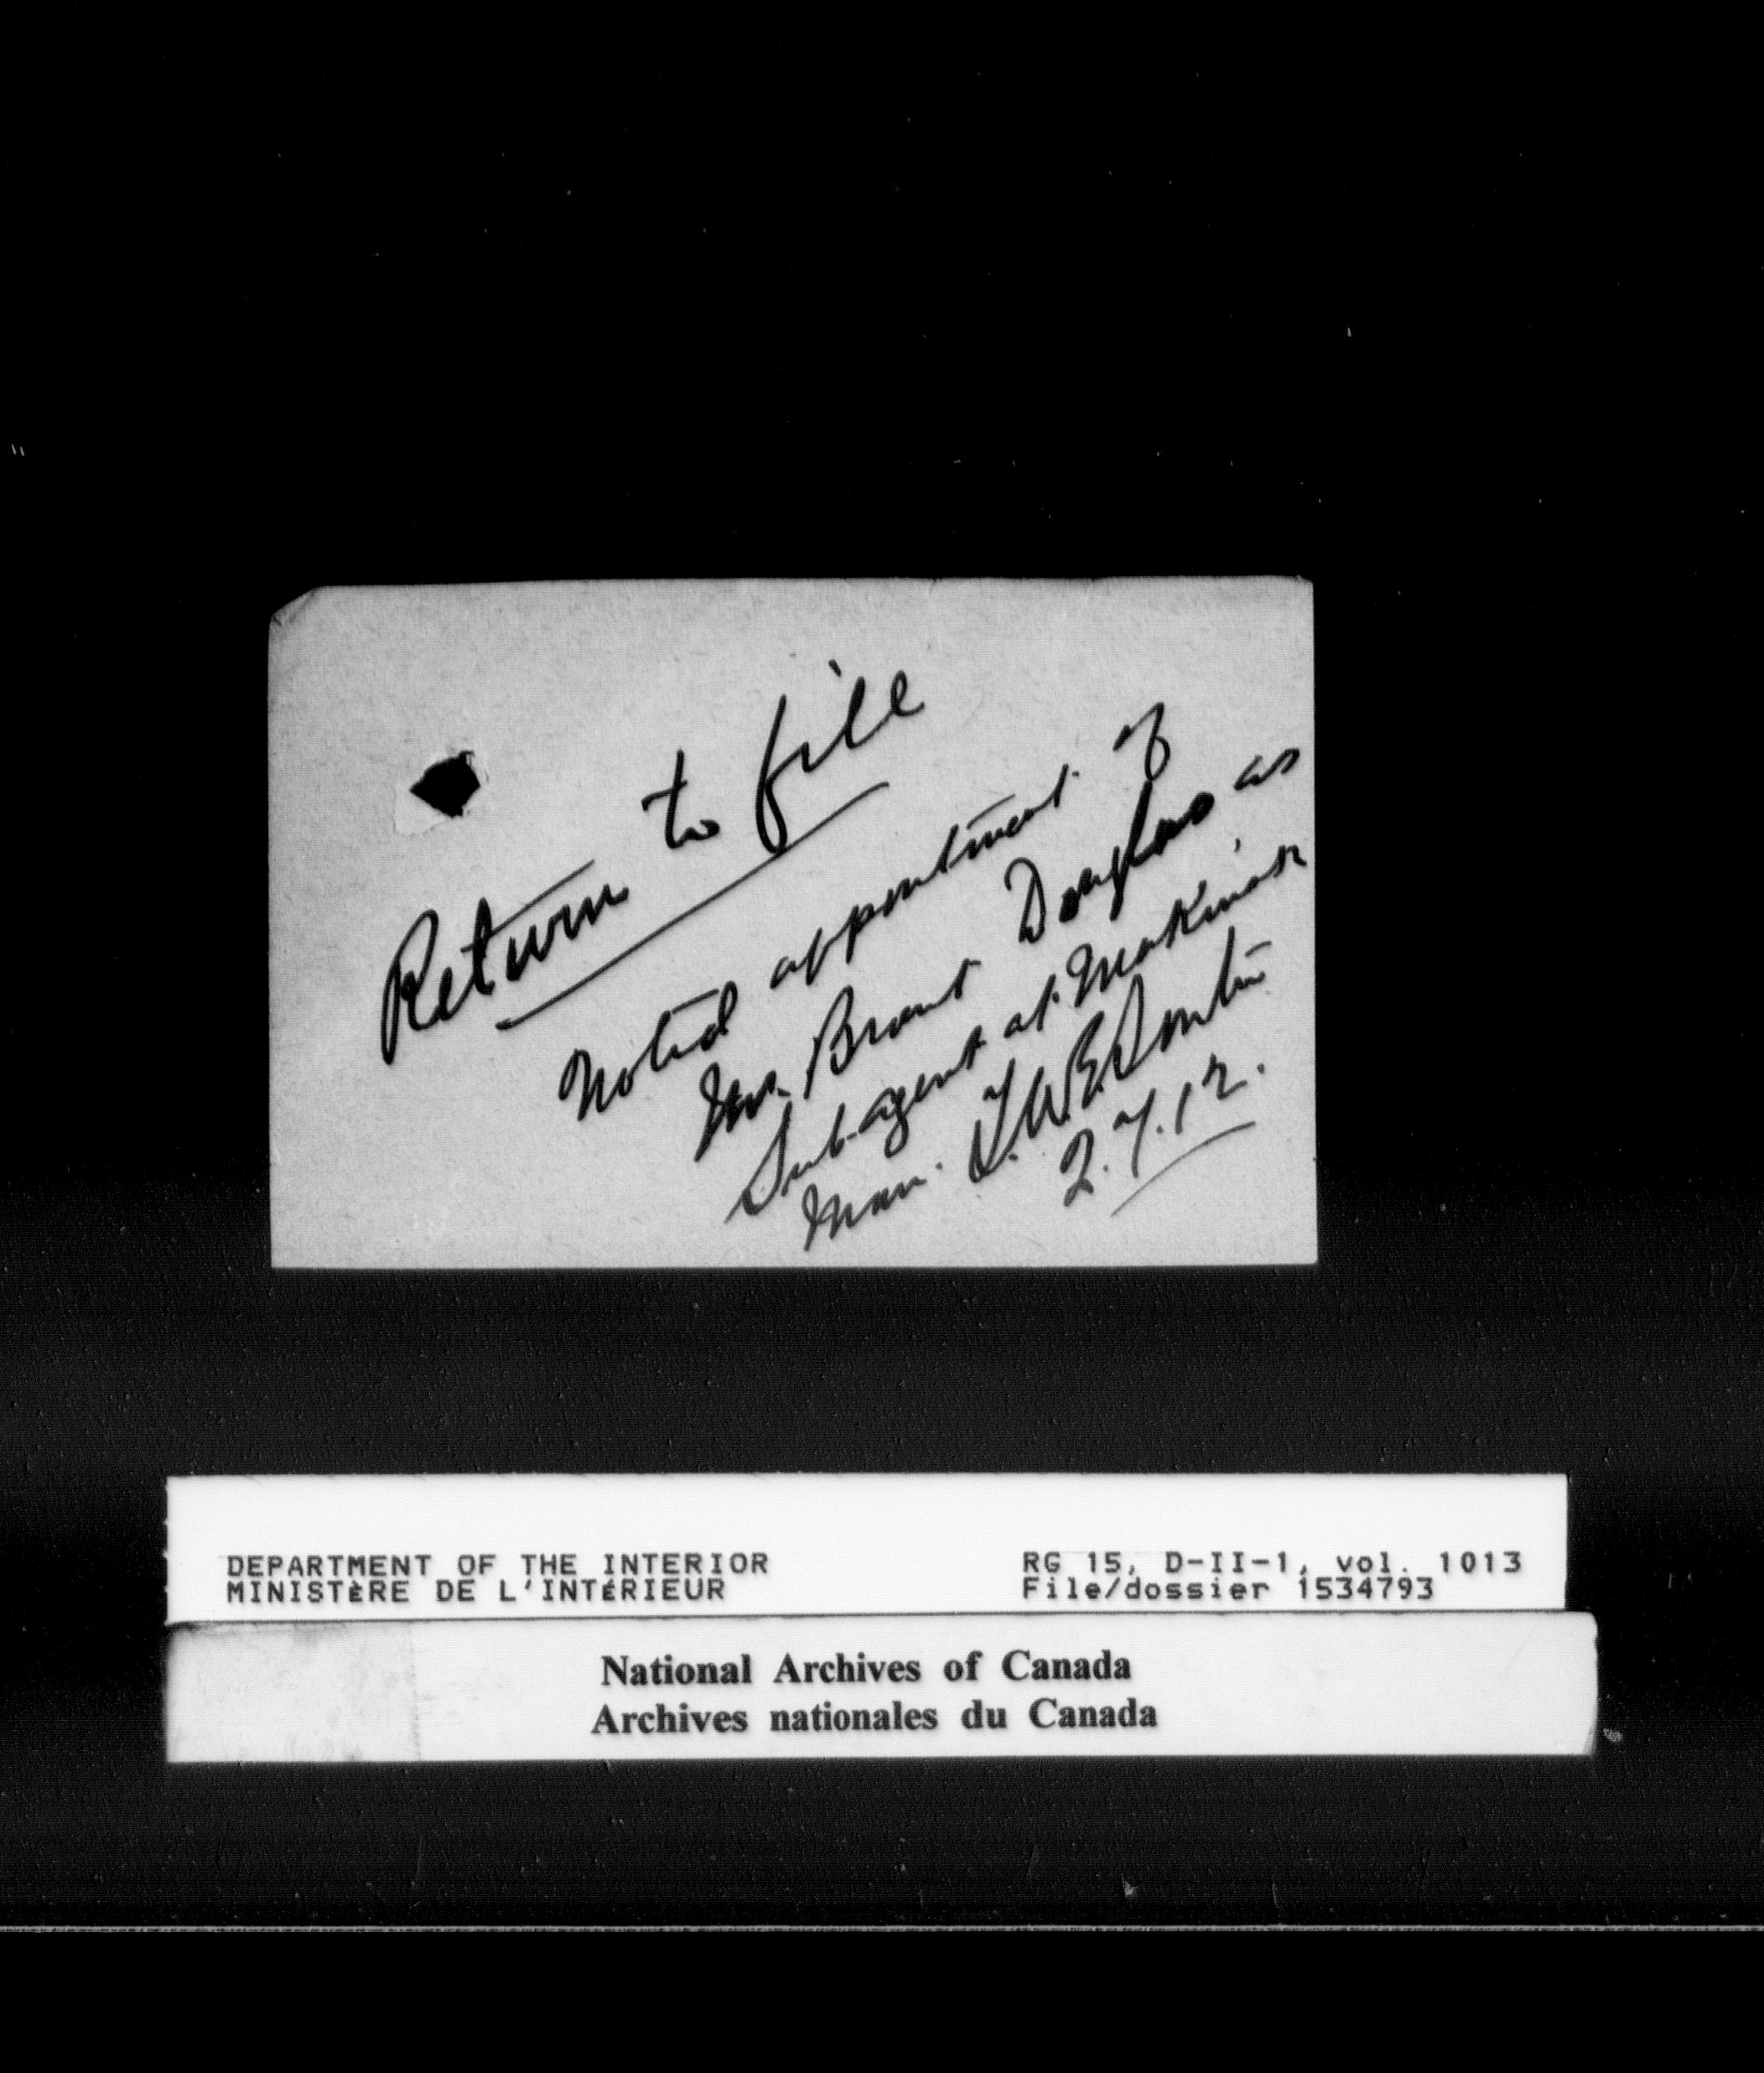 Return to file
Noted appointment of
Mr. Brant Douglas as
Sub-agent at Makinak
Man.
2.7.12.
DEPARTMENT OF THE INTERIOR
MINISTÈRE DE L'INTÉRIEUR
RG 15, D-II-1, vol. 1013
File/dossier 1534793
National Archives of Canada
Archives nationales du Canada